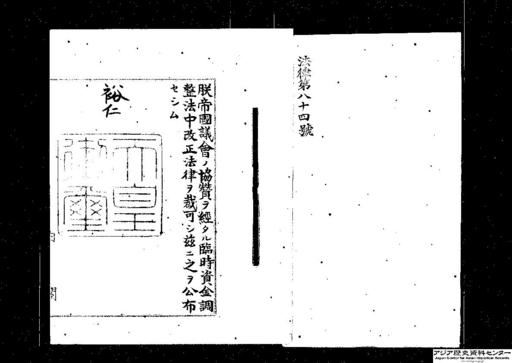 法律第八十四號
朕帝國議會ノ協贊ヲ經タル臨時資金調
整法中改正法律ヲ裁可シ茲ニ之ヲ公布
セシム
裕仁
天皇
御璽
内閣
アジア歴史資料センター
Japan Center for Asian Historical Records